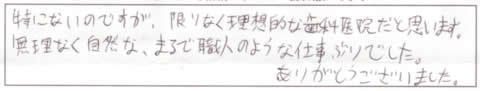 特にないのですが、限りなく理想的な歯科医院だと思います。
無理なく自然な、まるで職人のような仕事ぶりでした。
ありがとうございました。